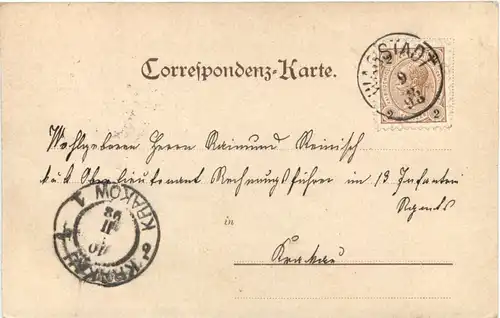 Correspondenz-Karte.
WAGSTADT
9
2
2
Wohlgeboren Herrn Raimund Reinisch
k. u. k. Oberlieutenant Rechnungsführer im 13 Infanterie
Regmts
in
Krakau
KRAKÓW 1
KRAKAU